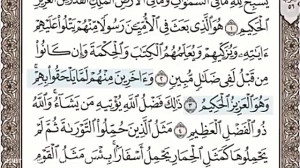 يُسَبِّحُ لِلَّهِ مَا فِي ٱلسَّمَٰوَٰتِ وَمَا فِي ٱلْأَرْضِ ٱلْمَلِكِ ٱلْقُدُّوسِ ٱلْعَزِيزِ
ٱلْحَكِيمِ ١ هُوَ ٱلَّذِي بَعَثَ فِي ٱلْأُمِّيِّـۧنَ رَسُولًا مِّنْهُمْ يَتْلُوا۟ عَلَيْهِمْ
ءَايَٰتِهِۦ وَيُزَكِّيهِمْ وَيُعَلِّمُهُمُ ٱلْكِتَٰبَ وَٱلْحِكْمَةَ وَإِن كَانُوا۟
مِن قَبْلُ لَفِي ضَلَٰلٍ مُّبِينٍ ٢ وَءَاخَرِينَ مِنْهُمْ لَمَّا يَلْحَقُوا۟ بِهِمْ
وَهُوَ ٱلْعَزِيزُ ٱلْحَكِيمُ ٣ ذَٰلِكَ فَضْلُ ٱللَّهِ يُؤْتِيهِ مَن يَشَآءُ وَٱللَّهُ
ذُو ٱلْفَضْلِ ٱلْعَظِيمِ ٤ مَثَلُ ٱلَّذِينَ حُمِّلُوا۟ ٱلتَّوْرَىٰةَ ثُمَّ لَمْ
يَحْمِلُوهَا كَمَثَلِ ٱلْحِمَارِ يَحْمِلُ أَسْفَارًۢا بِئْسَ مَثَلُ ٱلْقَوْمِ